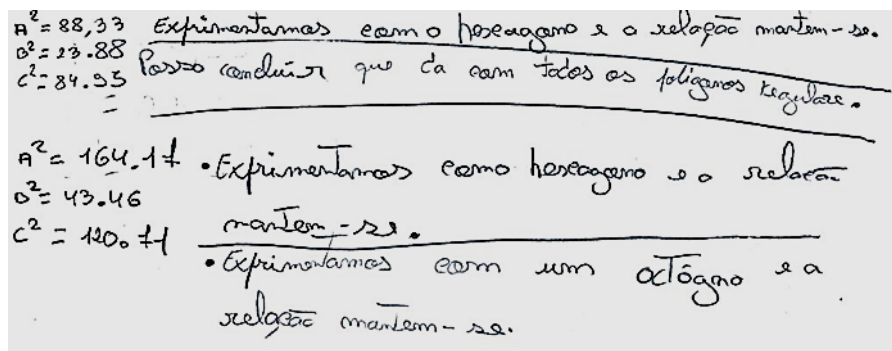 A²= 88,33 Exprimentamos com o hexagono e a relação mantem-se.
B²= 23.88
C²= 84.95 Posso concluir que da com todos os poligonos regulare.
=
A²= 164.17 • Exprimentamos como hexagono e a relação
B²= 43.46
C² = 120.71 mantem-se.
• Exprimentamos com um octógno e a
relação mantem-se.